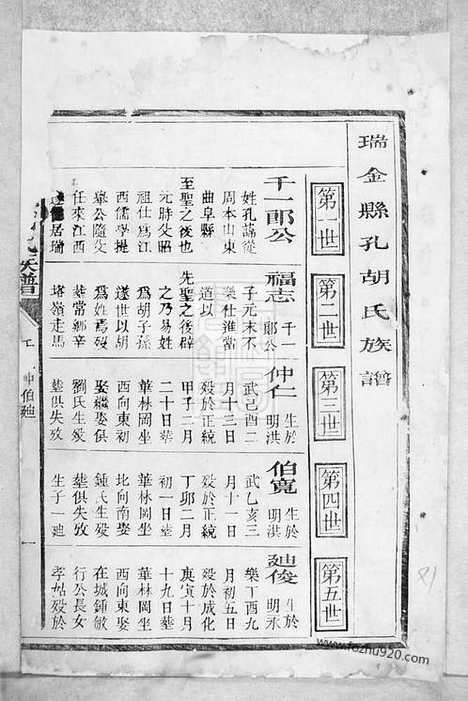 瑞金縣孔胡氏族譜
第一世
第二世
第三世
第四世
第五世
千一郎公
姓孔諱從
周本山東
曲阜縣
至聖之後也
元時父昭
祖仕為江
西儒學提
舉公隨父
任來江西
居瑞
福志
千一
郎公
子元末不
樂仕進當
道以
先聖之後辟
之乃易姓
為胡子孫
遂世以胡
為姓焉歿
葬常鄉辛
塔嶺走馬
仲仁
生於
明洪
武己酉二
月十三日
歿於正統
甲子二月
二十日葬
華林岡坐
北向南娶
娶繼娶俱
劉氏生歿
葬俱失攷
伯寬
生於
明洪
武乙亥三
月十一日
歿於正統
丁卯二月
初一日葬
華林岡坐
比向南娶
鍾氏生歿
葬俱失攷
生子一廸
廸俊
生於
明永
樂丁酉九
月初五日
歿於成化
庚寅十月
十九日葬
華林岡坐
西向東娶
在城鍾敏
行公長女
孝姑歿於
族譜
仲伯廸
一
www.fozhu920.com